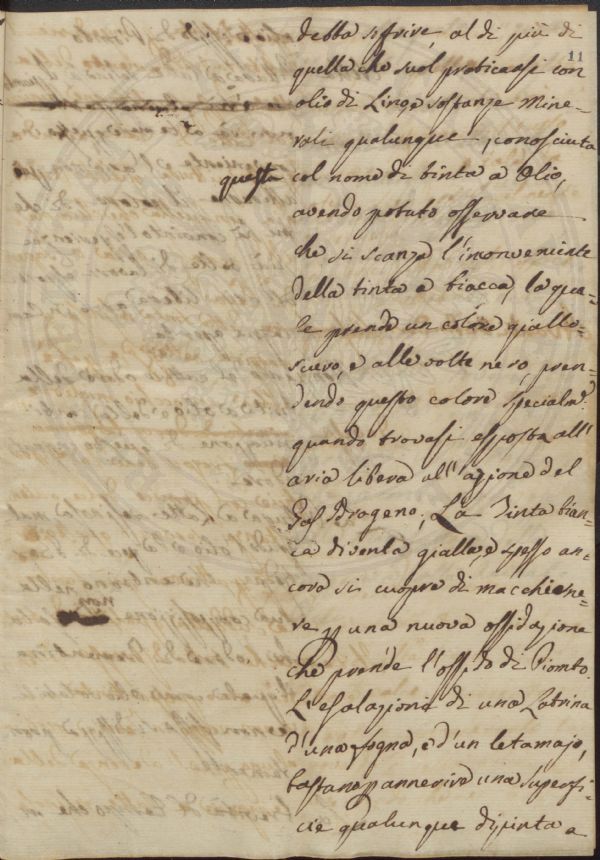 debba offrire, al di più di
11
quella che suol praticarsi con
olio di Lino, e sostanze Mine=
rali qualunque, conosciuta
questa col nome di tinta a Olio,
avendo potuto osservare
che si scanza l'inconveniente
della tinta a biacca, la qua=
le prende un colore giallo=
scuro, e alle volte nero, pren=
dendo questo colore specialm.e
quando trovasi esposta all'
aria libera all'azione del
Gas Idrogeno; La Tinta bian=
ca diventa gialla, e spesso an=
cora si cuopre di macchie ne=
re p una nuova ossidazione
non
che prende l'ossido di Piombo.
L'esalazioni di una Latrina
d'una fogna, e d'un letamajo,
bastano p annerire una superfi=
cie qualunque dipinta a